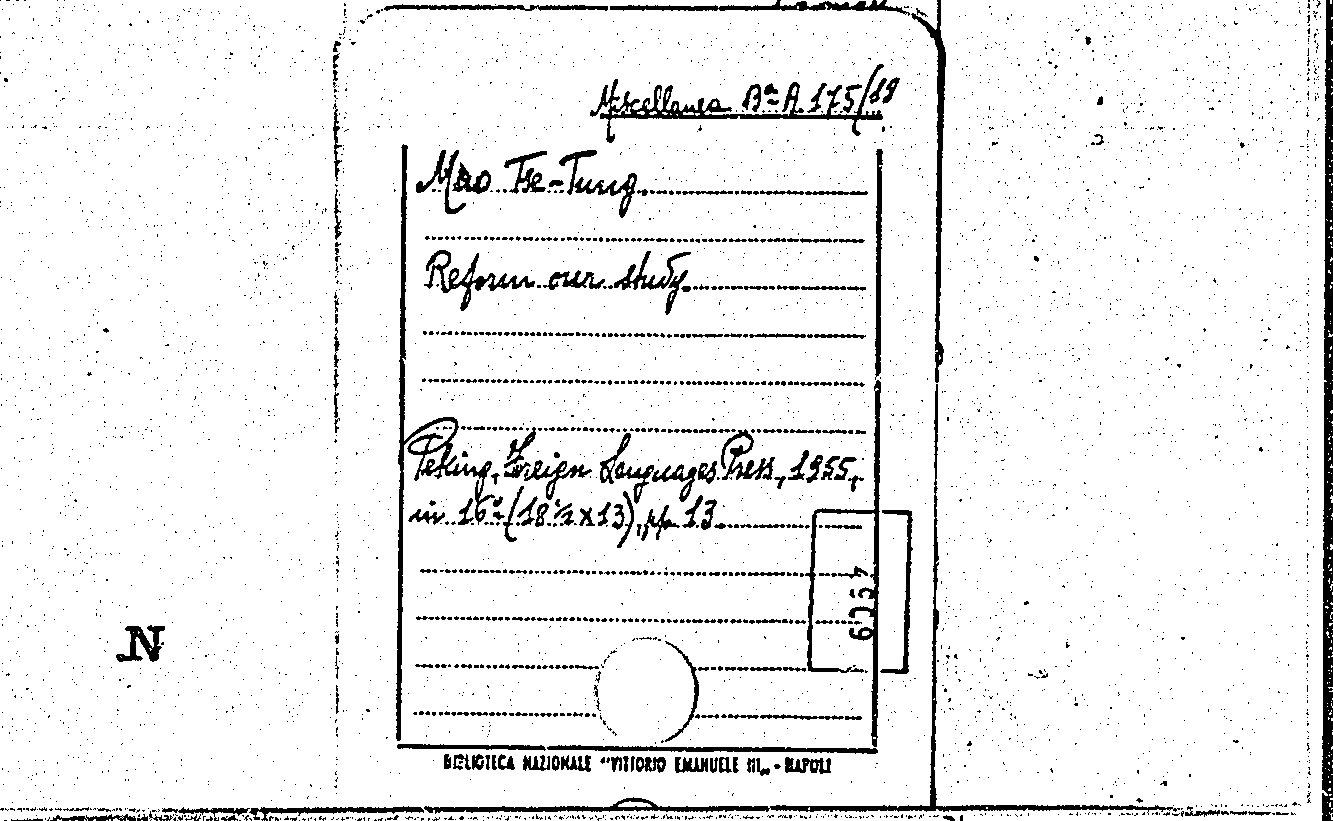 Miscellanea Bᵃ A 175/18
Mao Tse-Tung.
Reform our study.
Peking, Foreign Languages Press, 1955,
in 16º (18½ x 13), pp. 13.
N
BIBLIOTECA NAZIONALE "VITTORIO EMANUELE III„ - NAPOLI